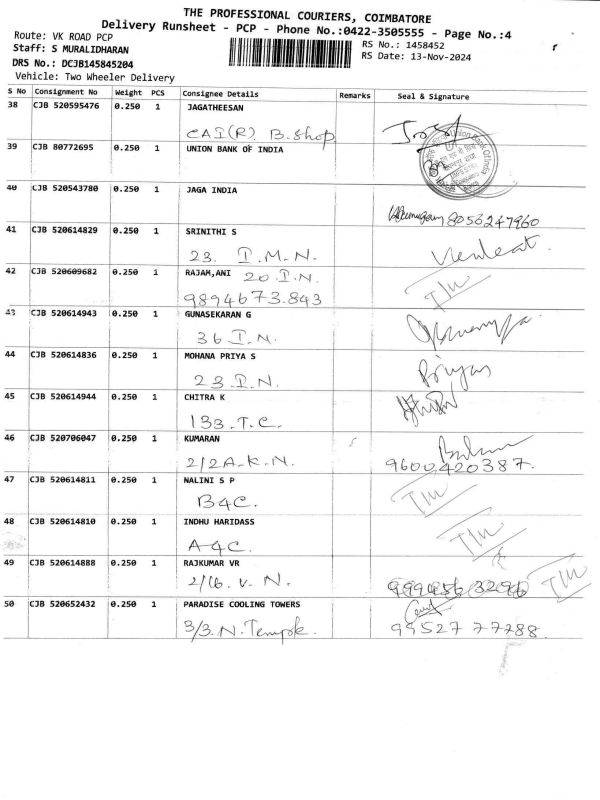 THE PROFESSIONAL COURIERS, COIMBATORE
Delivery Runsheet - PCP - Phone No.:0422-3505555 - Page No.:4
Route: VK ROAD PCP
RS No.: 1458452
Staff: S MURALIDHARAN
RS Date: 13-Nov-2024
DRS No.: DCJB145845204
Vehicle: Two Wheeler Delivery
S No Consignment No Weight PCS Consignee Details Remarks Seal & Signature
38 CJB 520595476 0.250 1 JAGATHEESAN
CAI(R) B.Shop
39 CJB 80772695 0.250 1 UNION BANK OF INDIA
Union Bank Of India
40 CJB 520543780 0.250 1 JAGA INDIA
8056247960
41 CJB 520614829 0.250 1 SRINITHI S
23. I.M.N. Venkat.
42 CJB 520609682 0.250 1 RAJAM,ANI 20.I.N.
9894673.843
43 CJB 520614943 0.250 1 GUNASEKARAN G
36.I.N.
44 CJB 520614836 0.250 1 MOHANA PRIYA S
23.I.N. Priya
45 CJB 520614944 0.250 1 CHITRA K
133.T.C.
46 CJB 520706047 0.250 1 KUMARAN
2/2A.K.N. 9600420387.
47 CJB 520614811 0.250 1 NALINI S P
B4C.
48 CJB 520614810 0.250 1 INDHU HARIDASS
A4C.
49 CJB 520614888 0.250 1 RAJKUMAR VR
2/16.V.N.
50 CJB 520652432 0.250 1 PARADISE COOLING TOWERS
3/3.N.Temple. 99527 77788.